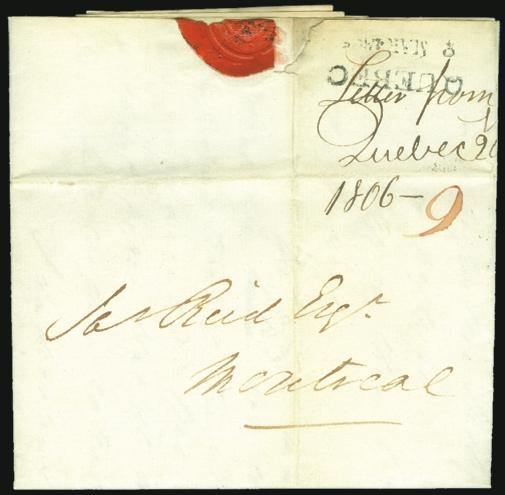 8 MAR
QUEBEC
Letter from
Quebec 2
1806 — 9
Jas Reid Esqr.
Montreal